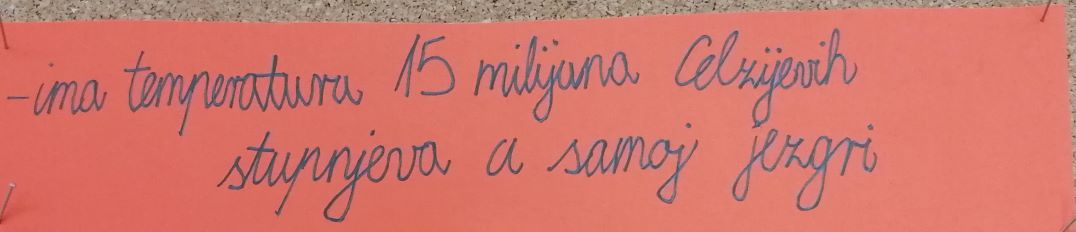 -ima temperatura 15 milijuna Celzijevih
stupnjeva a samoj jezgri